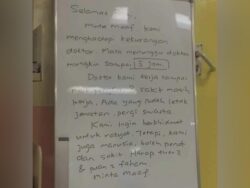 Selamat
minta maaf kami
menghadapi kekurangan
doktor. Masa menunggu doktor
mungkin sampai 5 jam.
Doktor kami kerja sampai
sakit masih
kerja. Ada yang sudah letak
jawatan, pergi swasta.
Kami ingin berkhidmat
untuk rakyat. Tetapi, kami
juga manusia, boleh penat
dan sakit. Harap tuan2
& puan2 faham.
minta maaf